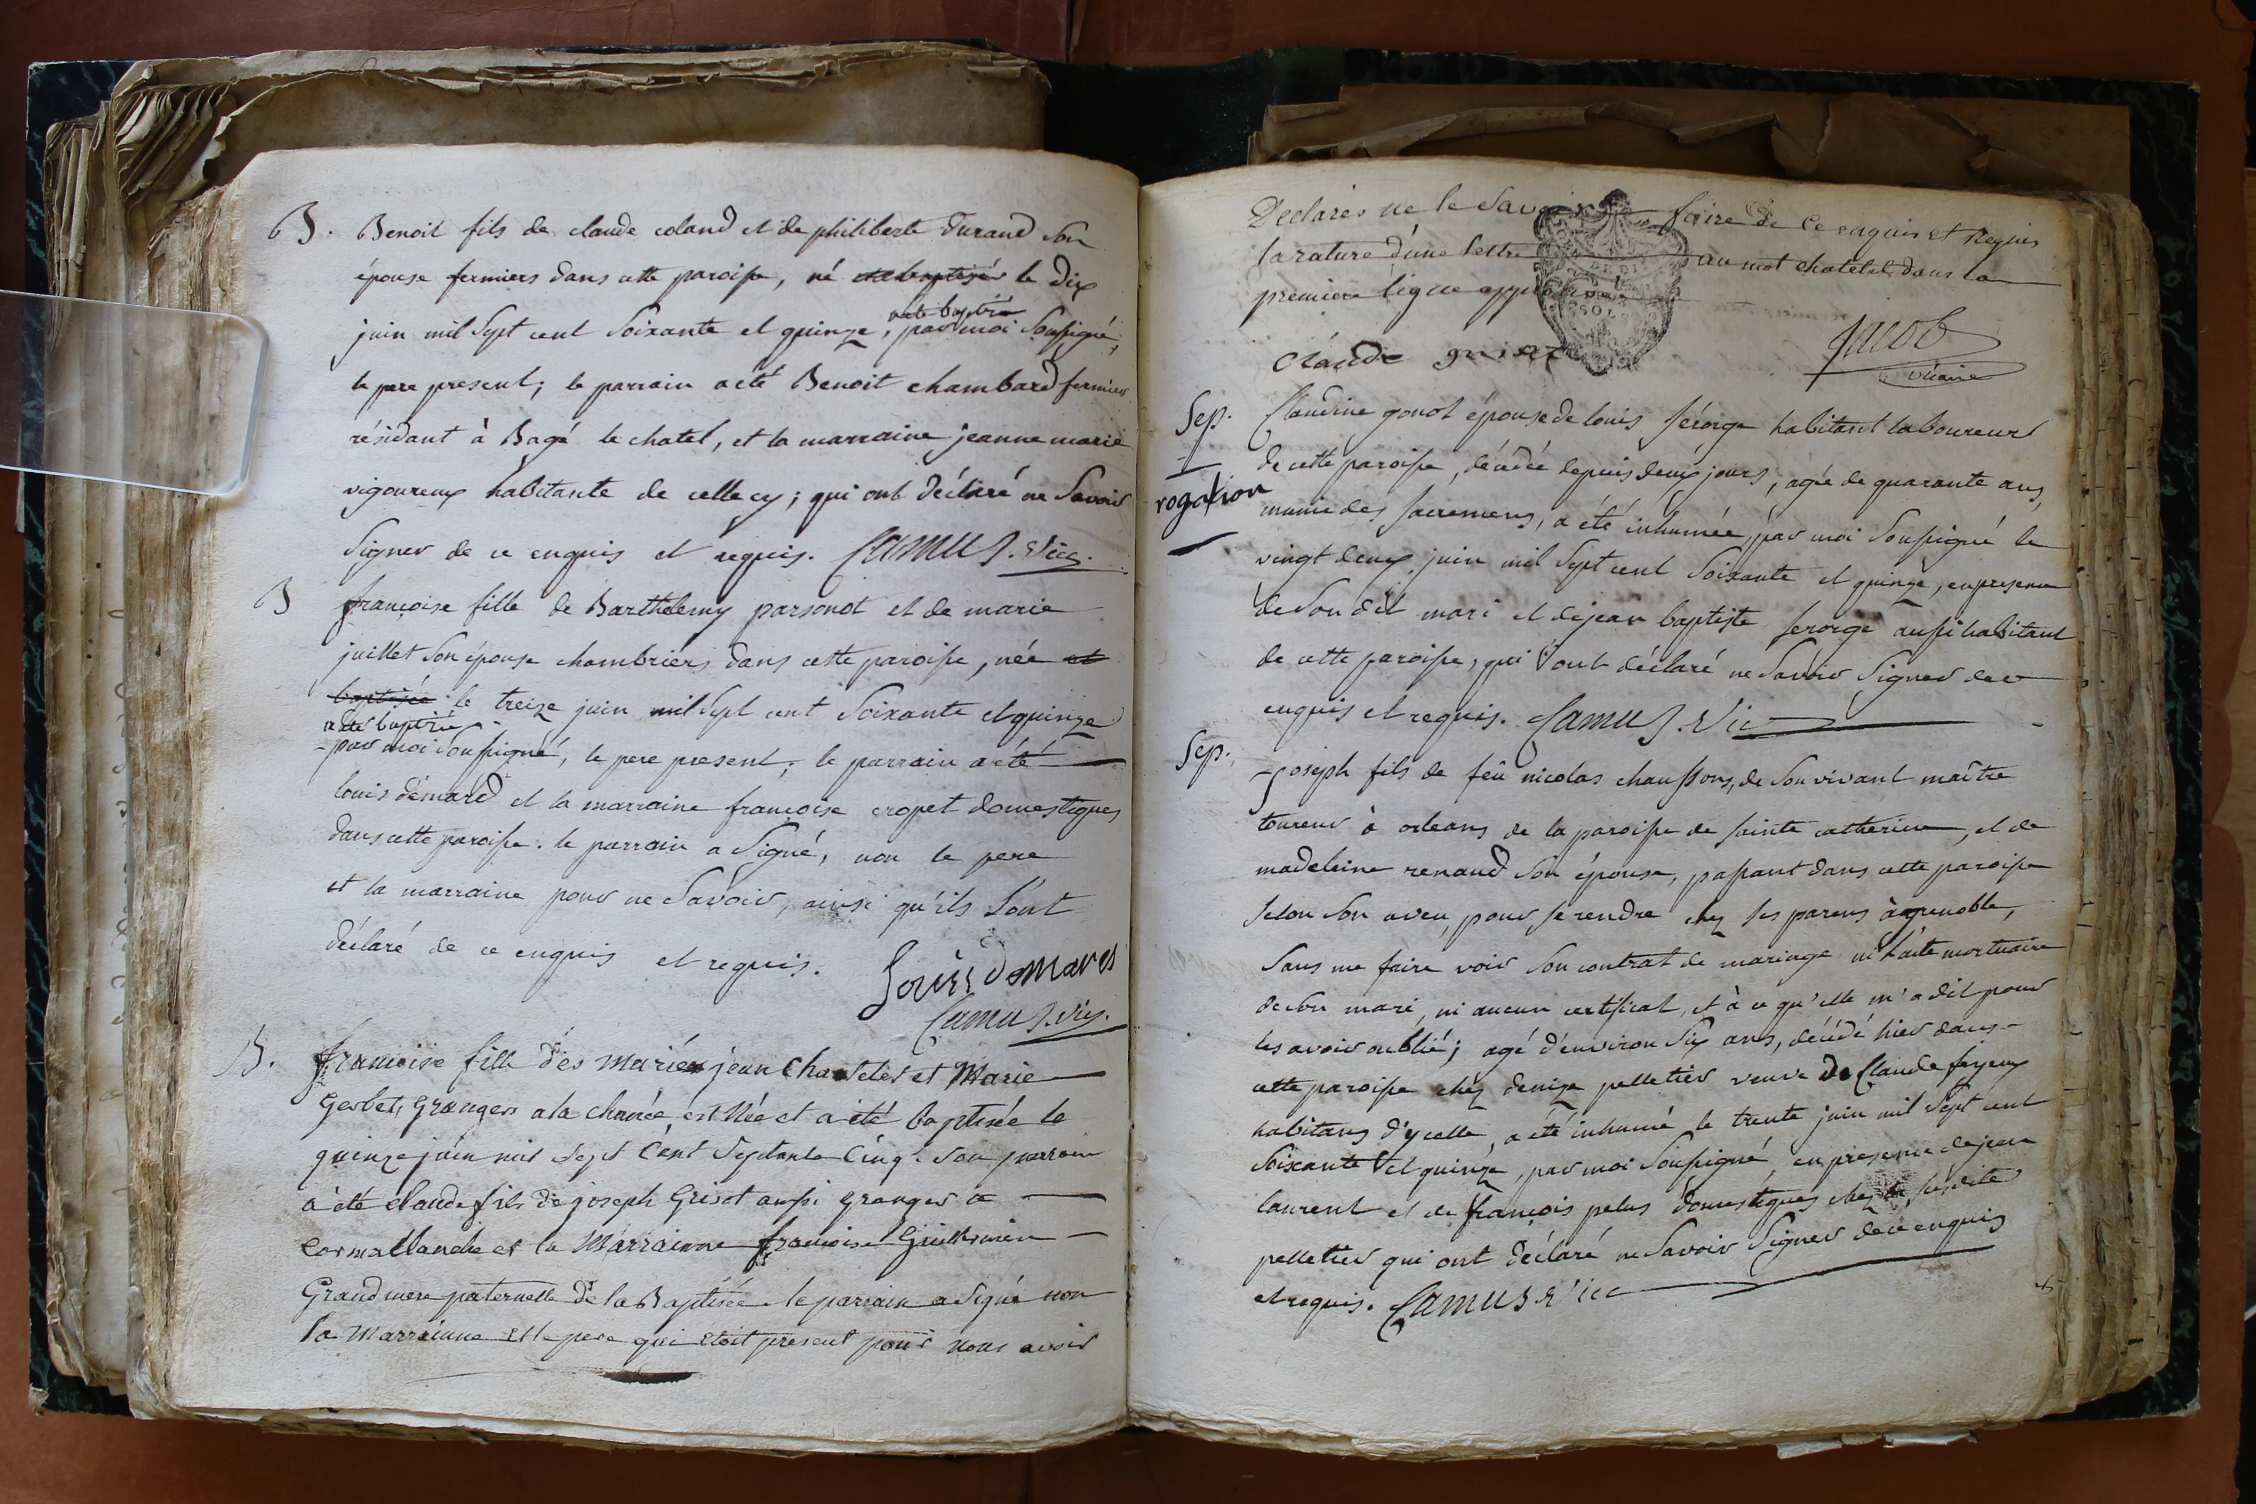 B. Benoit fils de claude coland et de philiberte durand son
épouse fermiers dans cette paroisse, né et baptisé le dix
a été baptisé
juin mil sept cent soixante et quinze, par moi soussigné,
le pere present; le parrain a été Benoit chambard fermier
résidant à Bagé le chatel, et la marraine jeanne marie
vigoureux habitante de celle cy; qui ont déclaré ne savoir
signer de ce enquis et requis. Camus. Vic.
B françoise fille de Barthelemy parsonot et de marie
juillet son épouse chambriers dans cette paroisse, née et
baptisée le treize juin mil sept cent soixante et quinze
a été baptisée
par moi soussigné, le pere present; le parrain a été
louis démard et la marraine françoise cropet domestiques
dans cette paroisse. le parrain a signé, non le pere
et la marraine pour ne savoir, ainsi qu'ils l'ont
déclaré de ce enquis et requis. Louis demares
Camus. Vic.
B. françoise fille des mariés jean Chatelet et Marie
Gerbet, Grangers a la chanée, est Née et a été baptisée le
quinze juin mil sept Cent septante Cinq. Son parrain
a été claude fils de joseph Grisot aussi granger a
Cormallanche et la Marraine françoise Guillermin
Grand mere paternelle de la Baptisée le parrain a signé non
la Marraine et le pere qui etoit present pour nous avoir
Declarés ne le Savoir faire de Ce enquis et Requis
la rature d'une lettre au mot chatelet dans la
premiere ligne approuvée
Claude
Jacob
vicaire
Sep. Claudine gonot épouse de louis férorge habitant laboureur
de cette paroisse, décédée depuis deux jours, agée de quarante ans,
rogation
munie des sacremens, a été inhumée, par moi soussigné le
vingt deux juin mil sept cent soixante et quinze, en presence
de son dit mari et de jean baptiste ferorge aussi habitant
de cette paroisse, qui ont déclaré ne savoir signer de ce
enquis et requis. Camus. Vic
Sep. Joseph fils de feu nicolas chaussons, de son vivant maître
toureur à orleans de la paroisse de sainte catherine, et de
madeleine renaud son épouse, passant dans cette paroisse
selon son aveu, pour se rendre chez ses parens à grenoble,
sans me faire voir son contrat de mariage ni l'acte mortuaire
de son mari, ni aucun certificat, et à ce qu'elle m'a dit pour
les avoir oublié; agé d'environ six ans, décédé hier dans
cette paroisse chez denize pelletier veuve de Claude fayeux
habitans d'ycelle, a été inhumé le trente juin mil sept cent
soixante et quinze, par moi soussigné, en presence de jean
laurent et de françois pelus domestiques chez la susdite
pelletier qui ont déclaré ne savoir signer de ce enquis
et requis. Camus Vic